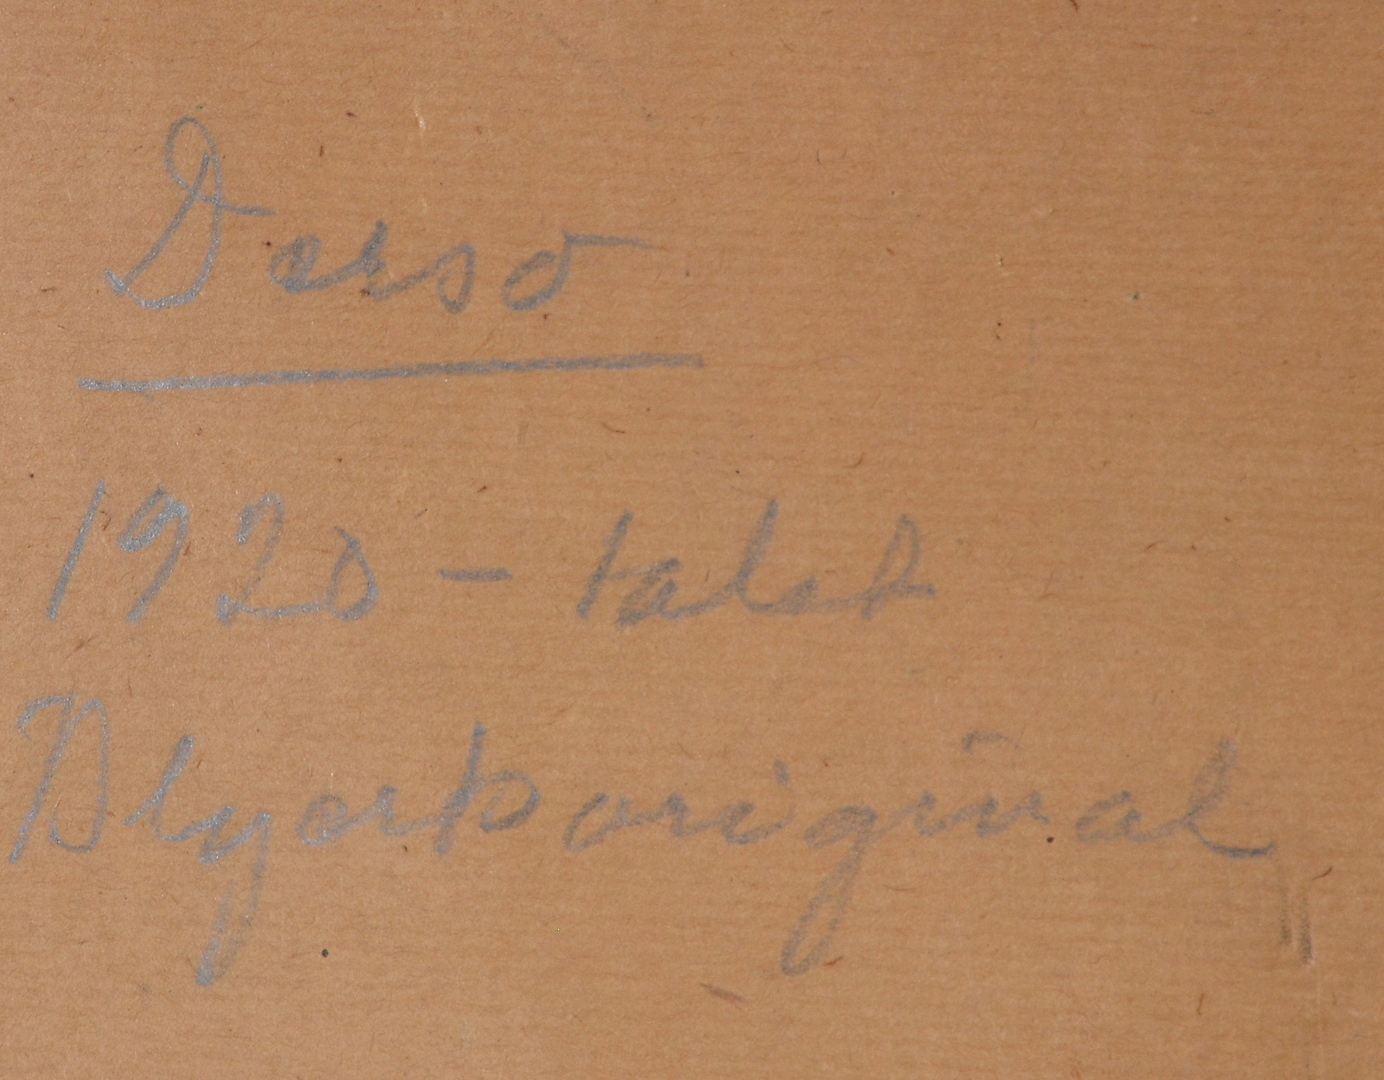 Derso
1920 - talet
Blyertsoriginal